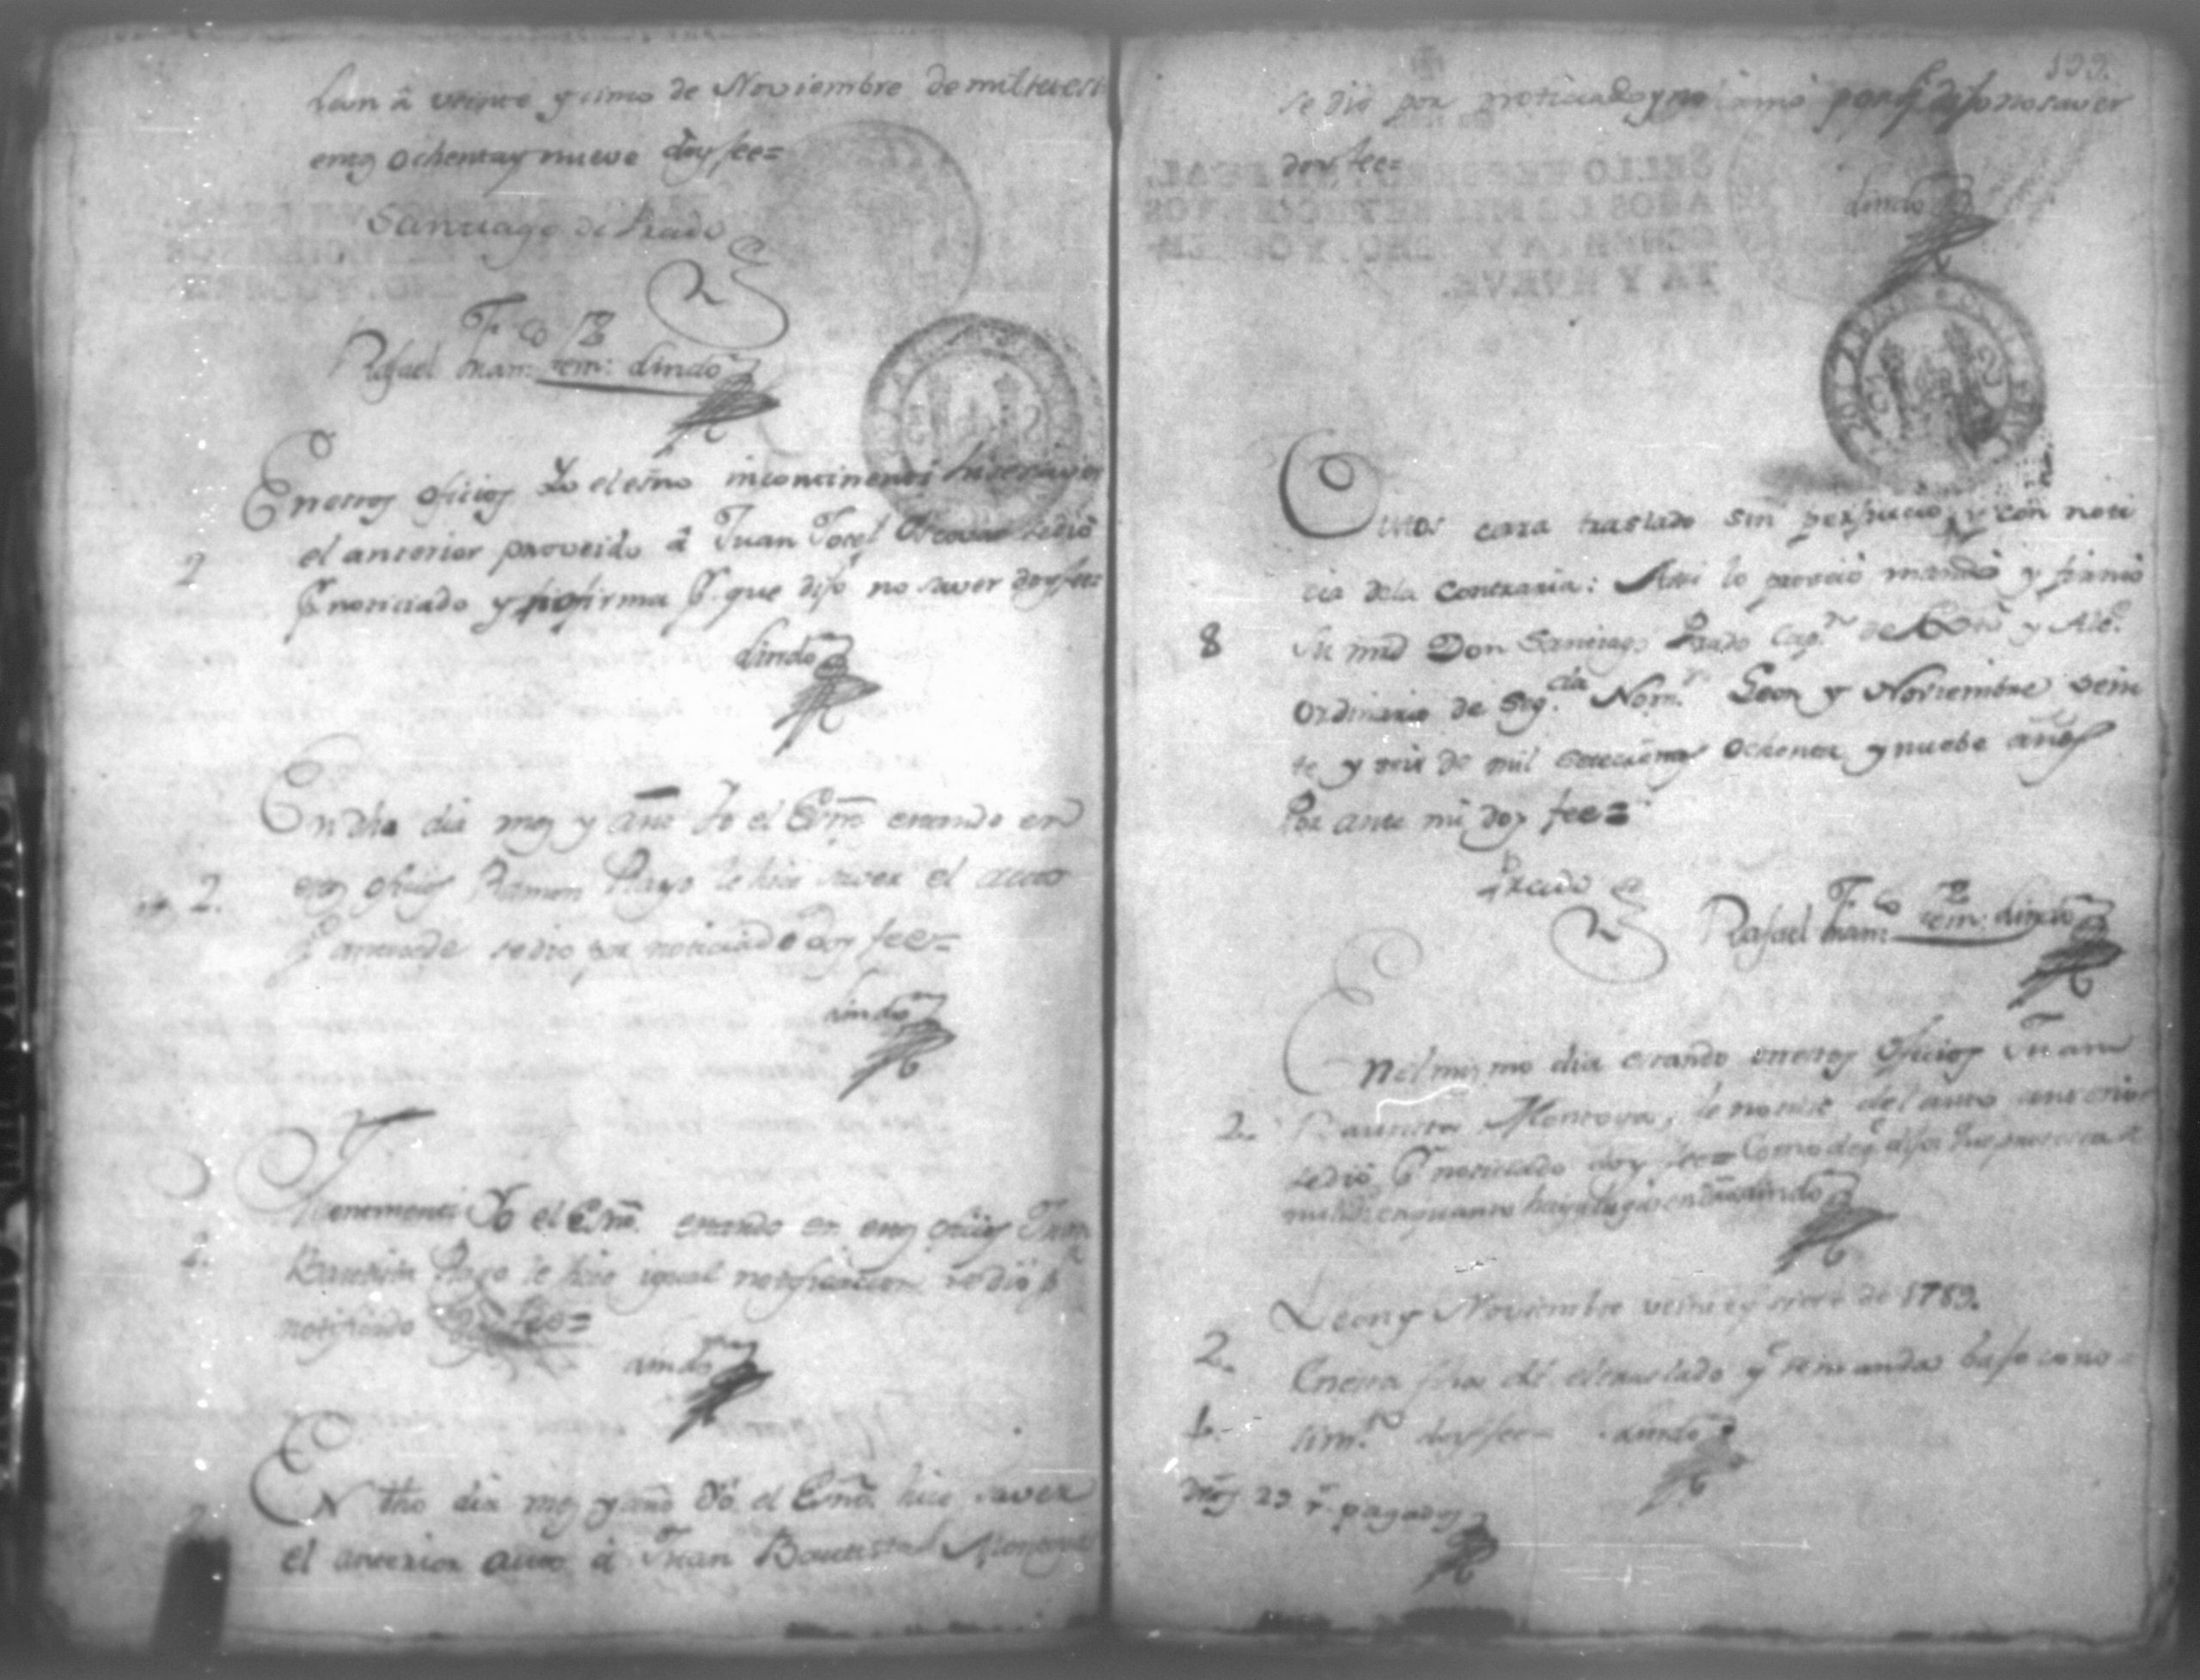 Leon â veinte y cinco de Noviembre de mil setesi
entos Ochenta y nueve doy fee=
Santiago de Prado
Rafael Fran.co Bem: Lindo
En estos oficios Yo el esño incontinenti hice saver
2 el anterior proveido â Juan Josef Escovar se dió
P. noticiado y no firma P. que dijo no saver doy fee=
Lindo
En dho dia mes y año Yo el Esño estando en
2. estos oficios Ramon Mayo le hice saver el auto
q antecede se dio por noticiado doy fee=
Lindo
Yo el Esño. estando en estos oficios Juan
2. Bautista Mayo le hice igual notificacion se dió p
notificado doy fee=
Lindo
En dho dia mes y año Yo el Esño. hice saver
2 el anterior auto â Juan Bautista Montoya
199.
se dió por noticiado y no firmó porq.e dijo no saver
doy fee=
Lindo
SELLO TERCERO, UN REAL,
AÑOS DE MIL SETECIENTOS
OCHENTA Y OCHO, Y OCHEN-
TA Y NUEVE.
Autos corra traslado sin perjuicio, y con noti
cia de la Contraria: Assi lo proveió mandó y firmó
8 Su mrd Don Santiago Prado Cap.n de y Alc.e
Ordinario de Seg.da Nom.n Leon y Noviembre vein
te y seis de mil setecientos Ochenta y nuebe años
Por ante mi doy fee=
Prado
Rafael Fran.co Bem: Lindo
En el mismo dia estando en estos Oficios Juan
2. Bautista Montoya, le noticié del auto anterior
se dió P.r noticiado doy fee=
Lindo
Leon y Noviembre veinte y siete de 1789.
2. En esta el traslado y se manda bajo cono
1.- sim.to doy fee= Lindo
Dros 29 r.s pagados